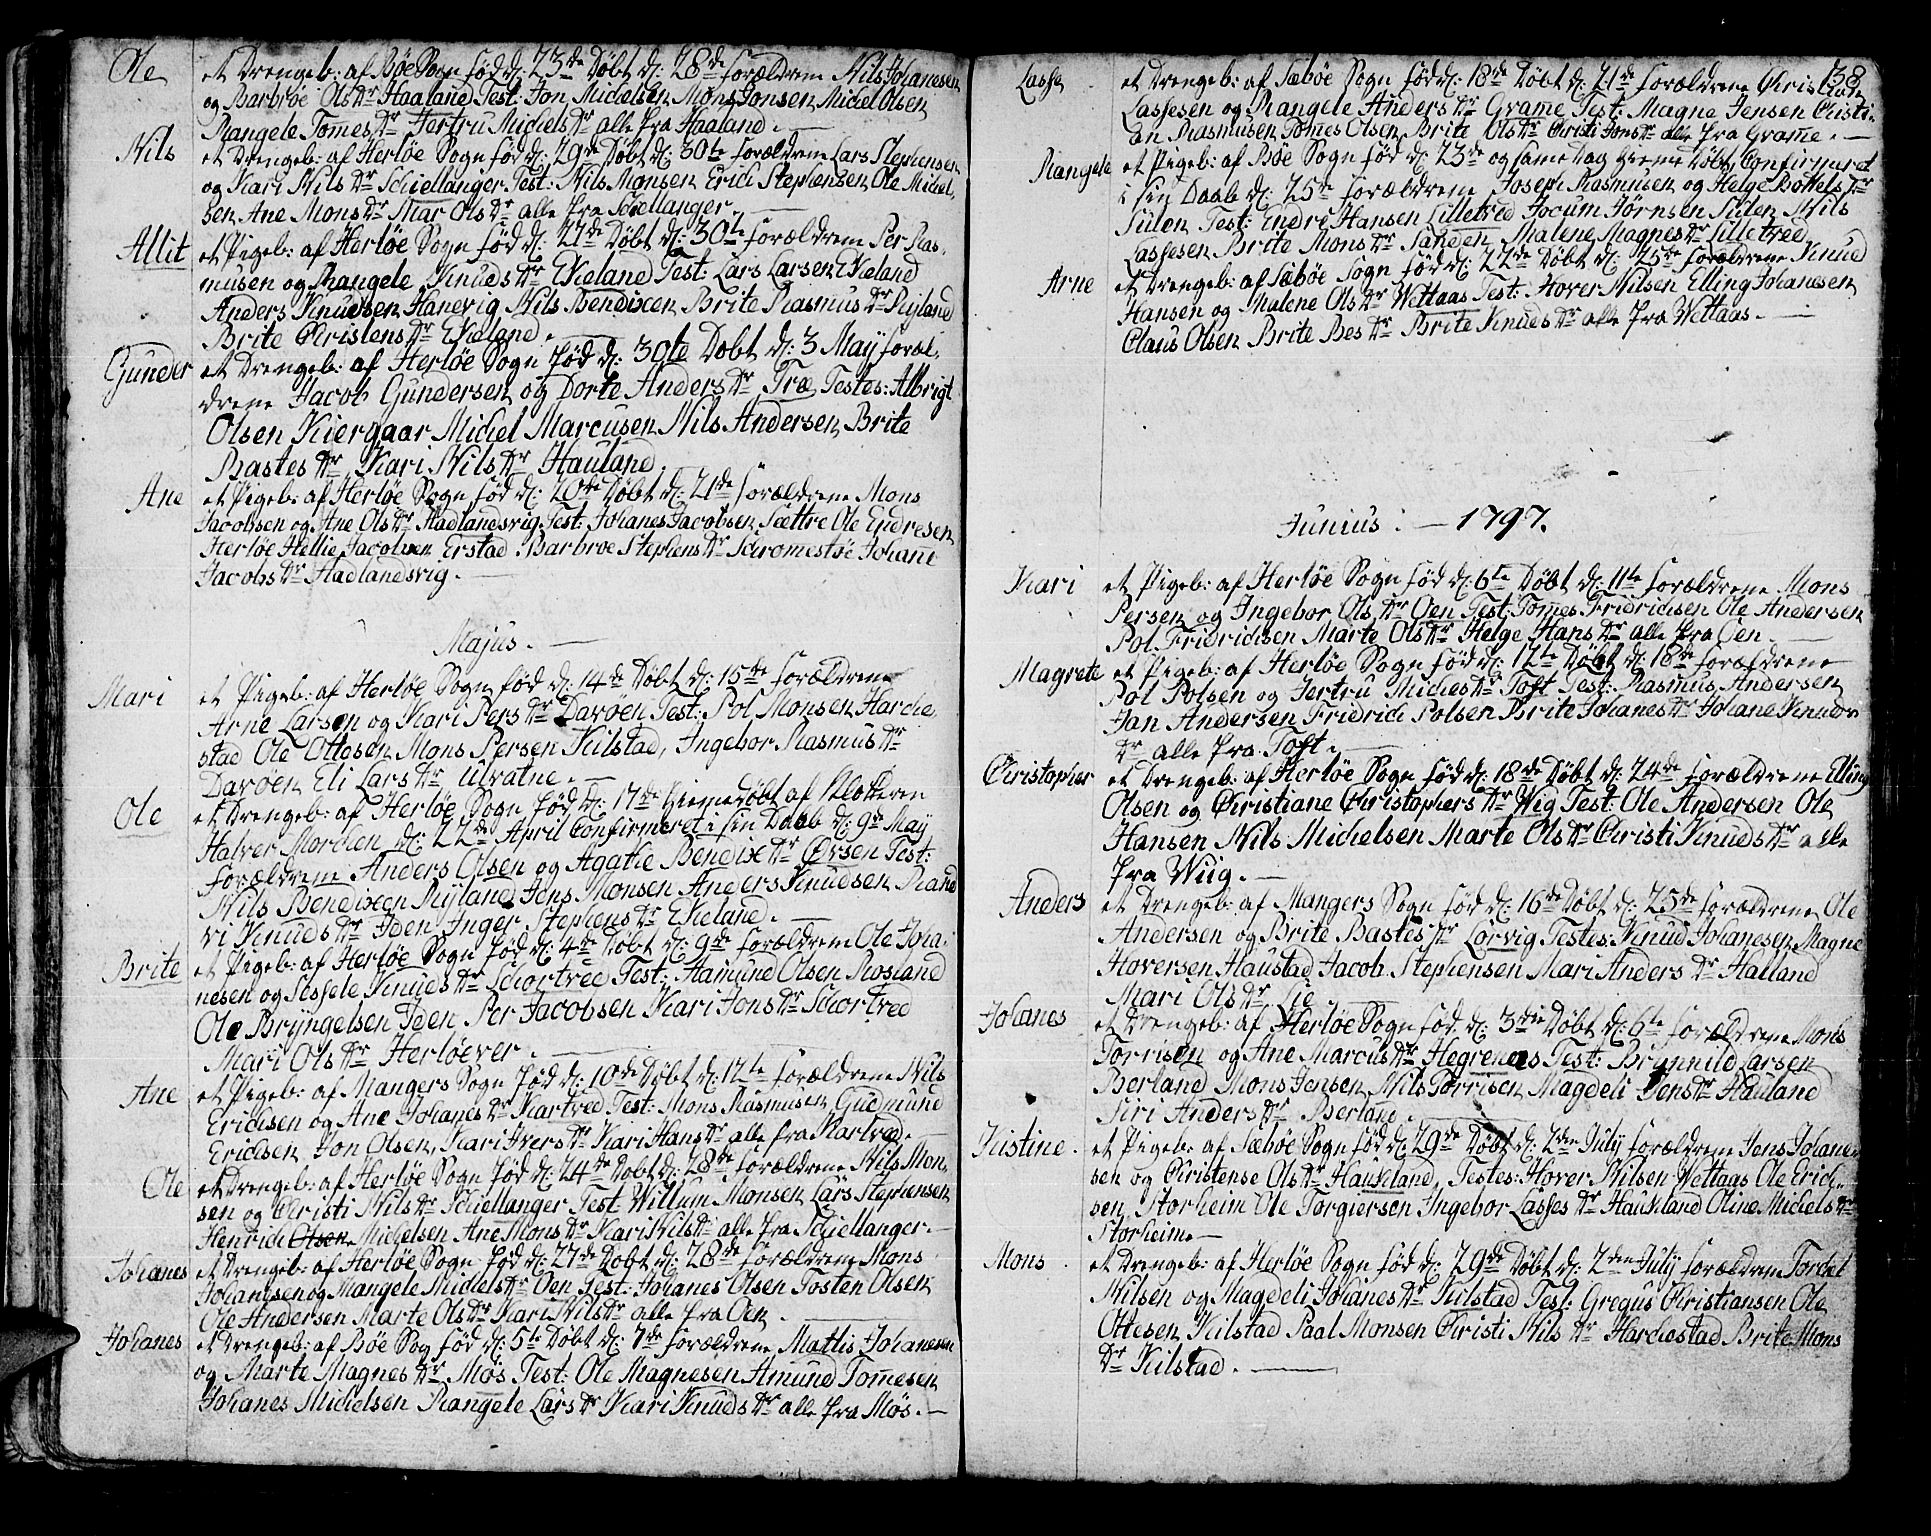 Ole et Drengeb: af Bøe Sogn fød d: 23de Døbt d: 28de forældrene Nils Johanesen
og Barbrøe Ols Dr Haaland Test: Jon Michelsen Mons Jonsen Michel Olsen
Rangele Tomes Dr Jertru Michels Dr alle fra Haaland.
Nils et Drengeb: af Herløe Sogn fød d: 29de Døbt d: 30te forældrene Lars Stephensen
og Kari Nils Dr Schiellanger Test: Nils Monsen Erich Stephensen Ole Michel-
sen Ane Mons Dr Mar Ols Dr alle fra Schellanger
Allit et Pigeb: af Herløe Sogn fød d: 27de Døbt d: 30te forældrene Per Ras-
musen og Rangele Knuds Dr Ekeland Test: Lars Larsen Ekeland
Anders Knudsen Hanevig Nils Bendixen Brite Rasmus Dr Ryland
Brite Christens Dr Ekeland.
Gunder et Drengeb: af Herløe Sogn fød d: 30te Døbt d: 3 May foræl-
drene Jacob Gundersen og Dorte Anders Dr Træ Testes: Albrigt
Olsen Kiergaar Michel Marcusen Nils Andersen Brite
Bastes Dr Kari Nils Dr Hauland.
Ane et Pigeb: af Herløe Sogn fød d: 20de Døbt d: 21de forældrene Mons
Jacobsen og Ane Ols Dr Hadlandsvig Test: Johanes Jacobsen Sættre Ole Endresen
Herløe Hellie Jacobsen Erstad Barbroe Stephens Dr Schromestøe Johane
Jacobs Dr Hadlandsvig.
Majus.
Mari et Pigeb: af Herløe Sogn fød d: 14de Døbt d: 15de forældrene
Arne Larsen og Kari Pers Dr Davøen Test: Pol Monsen Harche-
stad Ole Ottesen Mons Persen Kilstad, Ingebor Rasmus Dr
Davøen Eli Lars Dr Ulvatne.
Ole et Drengeb: af Herløe Sogn fød d: 17de hiemedøbt af Klokeren
Halver Morchen d: 22de April Confirmeret i sin Daab d: 9de May
forældrene Anders Olsen og Agathe Bendix Dr Ørsen Test:
Nils Bendixen Ryland Jens Monsen Anders Knudsen Rand
vi Knuds Dr Iden Inger Stephens Dr Ekeland.
Brite et Pigeb: af Herløe Sogn fød d: 4de Døbt d: 9de forældrene Ole Joha-
nesen og Sessele Knuds Dr Schortved Test: Hamund Olsen Rosland
Ole Bryngelsen Iden Per Jacobsen Kari Jons Dr Schortved
Mari Ols Dr Herløever.
Ane et Pigeb: af Mangers Sogn fød d: 10de Døbt d: 12te forældrene Nils
Erichsen og Ane Johanes Dr Kartved Test: Mons Rasmusen Gudmund
Erichsen Jon Olsen, Kari Ivers Dr Kari Hans Dr alle fra Kartved.
Ole et Drengeb: af Herløe Sogn fød d: 24de Døbt d: 28de forældrene Nils Mon-
sen og Christi Nils Dr Schiellanger Test Willum Monsen Lars Stephensen
Henrich Olsen Michelsen Ane Mons Dr Kari Nils Dr alle fra Schiellanger.
Johanes et Drengeb: af Herløe Sogn fød d: 27de Døbt d: 28de forældrene Mons
Johanesen og Mangele Michels Dr Oen Test: Johanes Olsen Tosten Olsen
Ole Andersen Marte Ols Dr Kari Nils Dr alle fra Oen.
Johanes et Drengeb: af Bøe Sog fød d: 5te Døbt d: 7de forældrene Mattis Johanesen
og Marte Magnes Dr Møs Test: Ole Magnesen Amund Tomesen
Johanes Michelsen Rangele Lars Dr Kari Knuds Dr alle fra Møs.
138
Lasse et Drengeb: af Sæbøe Sogn fød d: 18de Døbt d: 21de forældrene Christen
Lassesen og Rangele Anders Dr Grame Test: Magne Jensen Christi-
en Rasmusen Tomes Olsen Brite Ols Dr Christi Jons Dr alle fra Grame.
Rangele et Pigeb: af Bøe Sogn fød d: 23de og same Dag hieme Døbt Confirmeret
i sin Daab d: 25de forældrene Joseph Rasmusen og Helge Bottels Dr
Sulen Test: Endre Hansen Lilletved Jocum Jørnsen Sulen Nils
Lassesen Brite Mons Dr Sanden Malene Magnes Dr Lilletved
Arne et Drengeb: af Sæbøe Sogn fød d: 22de Døbt d: 25de forældrene Knud
Hansen og Malene Ols Dr Wettaas Test: Hover Nilsen Elling Johanesen
Claus Olsen Brite Bes Dr Brite Knuds Dr alle fra Wettaas.
Junius: 1797.
Kari et Pigeb: af Herløe Sogn fød d: 6te Døbt d: 11te forældrene Mons
Persen og Ingebor Ols Dr Oen Test: Tomes Fridrichsen Ole Andersen
Pol Fridrichsen Marte Ols Dr Helge Hans Dr alle fra Oen.
Magrete et Pigeb: af Herløe Sogn fød d: 12te Døbt d: 18de forældrene
Pol Polsen og Jertru Miches Dr Toft Test: Rasmus Andersen
Jan Andersen Fridrich Polsen Brite Johanes Dr Johane Knuds
Dr alle fra Toft.
Christopher et Drengeb: af Herløe Sogn fød d: 18de Døbt d: 24de forældrene Elling
Olsen og Christiane Christophers Dr Wiig Test: Ole Andersen Ole
Hansen Nils Michelsen Marte Ols Dr Christi Knuds Dr alle
fra Wiig.
Anders et Drengeb: af Mangers Sogn fød d: 16de Døbt d: 25de forældrene Ole
Andersen og Brite Bastes Dr Lorvig Testes: Knud Johanesen Magne
Hoversen Haustad Jacob Stephensen Mari Anders Dr Halland
Mari Ols Dr Lie
Johanes et Drengeb: af Herløe Sogn fød d: 3die Døbt d: 6te forældrene Mons
Torrisen og Ane Marcus Dr Hegrenes Test: Brynnild Larsen
Berland Mons Jensen Nils Torrisen Magdeli Jens Dr Hauland
Siri Anders Dr Berland.
Kistine et Pigeb: af Sæbøe Sogn fød d: 29de Døbt d: 2den July forældrene Jens Johane-
sen og Christense Ols Dr Haukland, Testes: Hover Nilsen Wettaas Ole Erich-
sen Storheim Ole Torgiersen Ingebor Lasses Dr Haukland Oline Michels Dr
Storheim
Mons et Drengeb: af Herløe Sogn fød d: 29de Døbt d: 2den July forældrene Torchel
Nilsen og Magdeli Johanes Dr Kilstad Test: Gregus Christiansen Ole
Ottesen Kilstad Paal Monsen Christi Nils Dr Harchestad Brite Mons
Dr Kilstad.